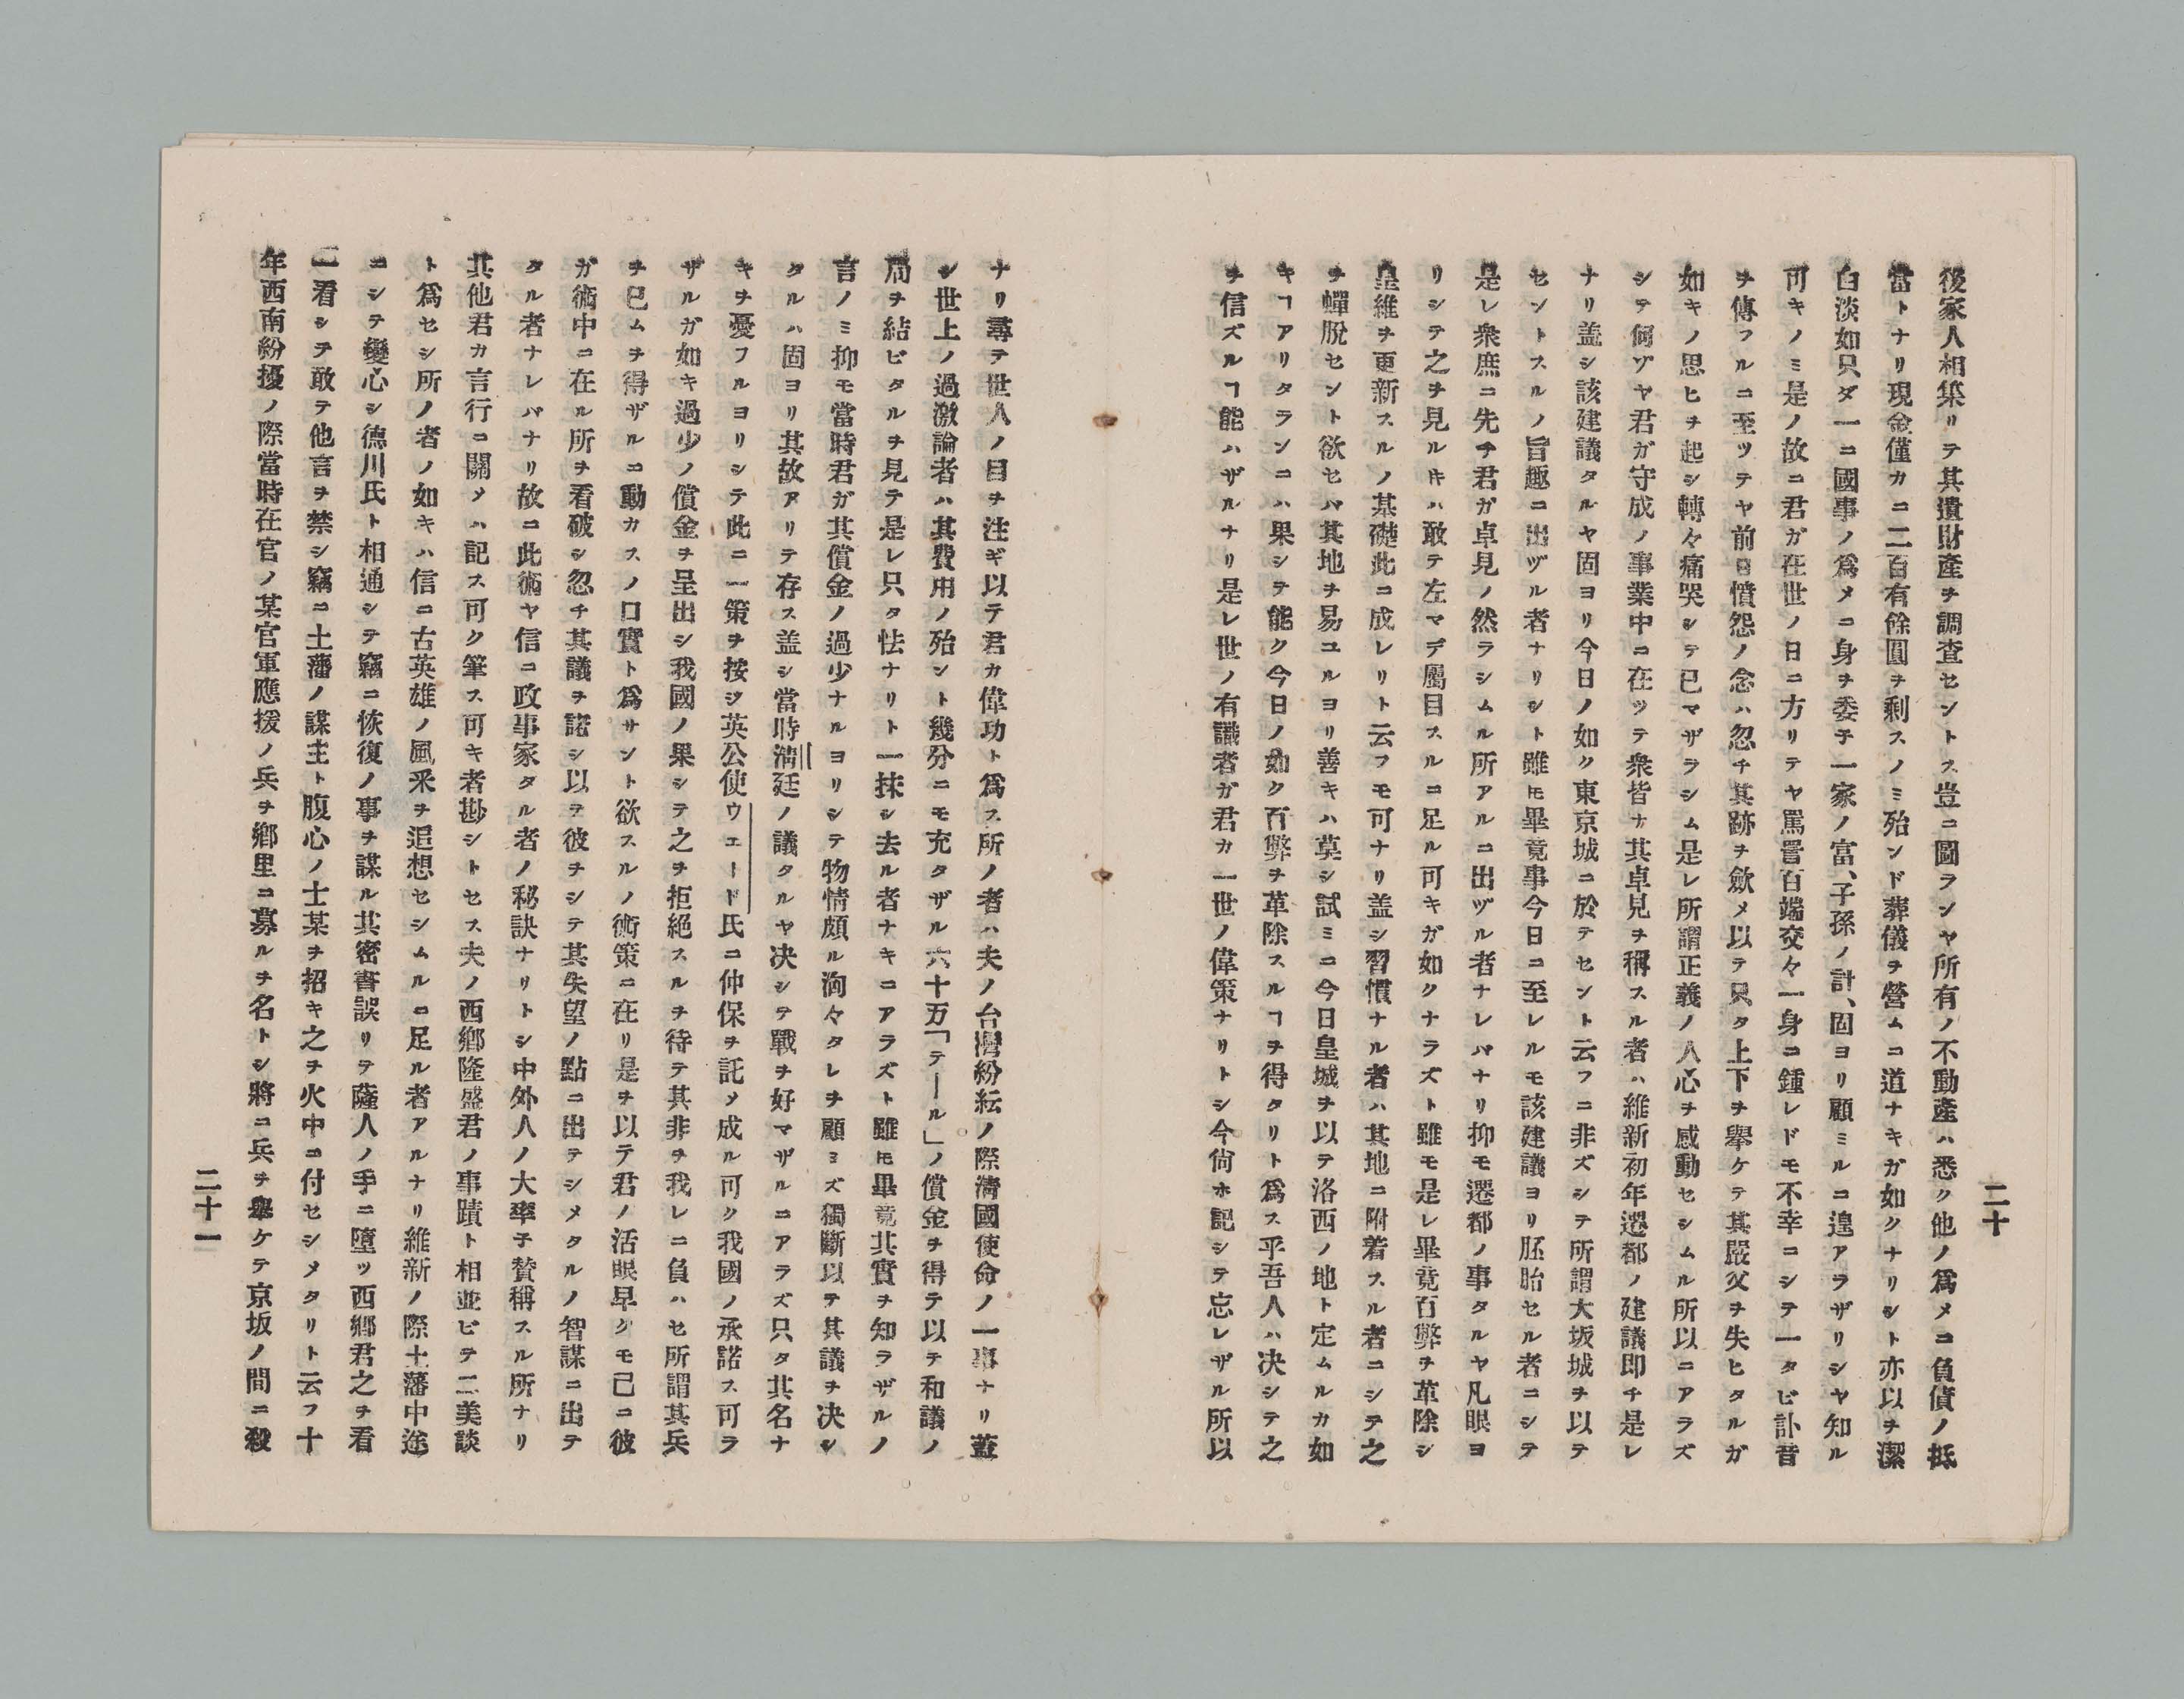 二十
後家人相集リテ其遺財産ヲ調査セントス豈ニ圖ランヤ所有ノ不動産ハ悉ク他ノ爲メニ負債ノ抵
當トナリ現金僅カニ二百有餘圓ヲ剩スノミ殆ンド葬儀ヲ營ムニ道ナキガ如クナリシト亦以テ潔
白淡如只ダ一ニ國事ノ爲メニ身ヲ委子一家ノ富、子孫ノ計、固ヨリ顧ミルニ遑アラザリシヤ知ル
可キノミ是ノ故ニ君ガ在世ノ日ニ方リテヤ罵詈百端交々一身ニ鍾レドモ不幸ニシテ一タビ訃音
ヲ傳フルニ至ツテヤ前日憤怨ノ念ハ忽チ其跡ヲ歛メ以テ只タ上下ヲ擧ケテ其嚴父ヲ失ヒタルガ
如キノ思ヒヲ起シ轉々痛哭シテ已マザラシム是レ所謂正義ノ人心ヲ感動セシムル所以ニアラズ
シテ何ヅヤ君ガ守成ノ事業中ニ在ツテ衆皆ナ其卓見ヲ稱スル者ハ維新初年遷都ノ建議即チ是レ
ナリ盖シ該建議タルヤ固ヨリ今日ノ如ク東京城ニ於テセント云フニ非ズシテ所謂大坂城ヲ以テ
セントスルノ旨趣ニ出ヅル者ナリシト雖𪜈畢竟事今日ニ至レルモ該建議ヨリ胚胎セル者ニシテ
是レ衆庶ニ先チ君ガ卓見ノ然ラシムル所アルニ出ヅル者ナレバナリ抑モ遷都ノ事タルヤ凡眼ヨ
リシテ之ヲ見ル𪜈ハ敢テ左マデ屬目スルニ足ル可キガ如クナラズト雖モ是レ畢竟百弊ヲ革除シ
皇維ヲ更新スルノ基礎此ニ成レリト云フモ可ナリ盖シ習慣ナル者ハ其地ニ附着スル者ニシテ之
ヲ蟬脫セント欲セバ其地ヲ易ユルヨリ善キハ莫シ試ミニ今日皇城ヲ以テ洛西ノ地ト定ムルカ如
キヿアリタランニハ果シテ能ク今日ノ如ク百弊ヲ革除スルヿヲ得タリト爲ス乎吾人ハ决シテ之
ヲ信ズルヿ能ハザルナリ是レ世ノ有識者ガ君カ一世ノ偉策ナリトシ今尙ホ記シテ忘レザル所以
ナリ尋テ世人ノ目ヲ注ギ以テ君カ偉功ト爲ス所ノ者ハ夫ノ台灣紛紜ノ際淸國使命ノ一事ナリ蓋
シ世上ノ過激論者ハ其費用ノ殆ント幾分ニモ充タザル六十万「テール」ノ償金ヲ得テ以テ和議ノ
局ヲ結ビタルヲ見テ是レ只タ怯ナリト一抹シ去ル者ナキニアラズト雖𪜈畢竟其實ヲ知ラザルノ
言ノミ抑モ當時君ガ其償金ノ過少ナルヨリシテ物情頗ル洶々タレヲ顧ミズ獨斷以テ其議ヲ决シ
タルハ固ヨリ其故アリテ存ス盖シ當時淸廷ノ議タルヤ决シテ戰ヲ好マザルニアラズ只タ其名ナ
キヲ憂フルヨリシテ此ニ一策ヲ按ジ英公使ウエード氏ニ仲保ヲ託メ成ル可ク我國ノ承諾ス可ラ
ザルガ如キ過少ノ償金ヲ呈出シ我國ノ果シテ之ヲ拒絕スルヲ待テ其非ヲ我レニ負ハセ所謂其兵
ヲ已ムヲ得ザルニ動カスノ口實ト爲サント欲スルノ術策ニ在リ是ヲ以テ君ノ活眼早クモ已ニ彼
ガ術中ニ在ル所ヲ看破シ忽チ其議ヲ諾シ以テ彼ヲシテ其失望ノ點ニ出テシメタルノ智謀ニ出テ
タル者ナレバナリ故ニ此術ヤ信ニ政事家タル者ノ秘訣ナリトシ中外人ノ大率子贊稱スル所ナリ
其他君カ言行ニ關メハ記ス可ク筆ス可キ者尠シトセス夫ノ西鄕隆盛君ノ事蹟ト相並ビテ二美談
ト爲セシ所ノ者ノ如キハ信ニ古英雄ノ風釆ヲ追想セシムルニ足ル者アルナリ維新ノ際土藩中途
ニシテ變心シ德川氏ト相通シテ竊ニ恢復ノ事ヲ謀ル其密書誤リテ薩人ノ手ニ墮ツ西鄕君之ヲ看
一看シテ敢テ他言ヲ禁シ竊ニ土藩ノ謀主ト腹心ノ士某ヲ招キ之ヲ火中ニ付セシメタリト云フ十
年西南紛擾ノ際當時在官ノ某官軍應援ノ兵ヲ鄕里ニ募ルヲ名トシ將ニ兵ヲ擧ケテ京坂ノ間ニ殺
二十一